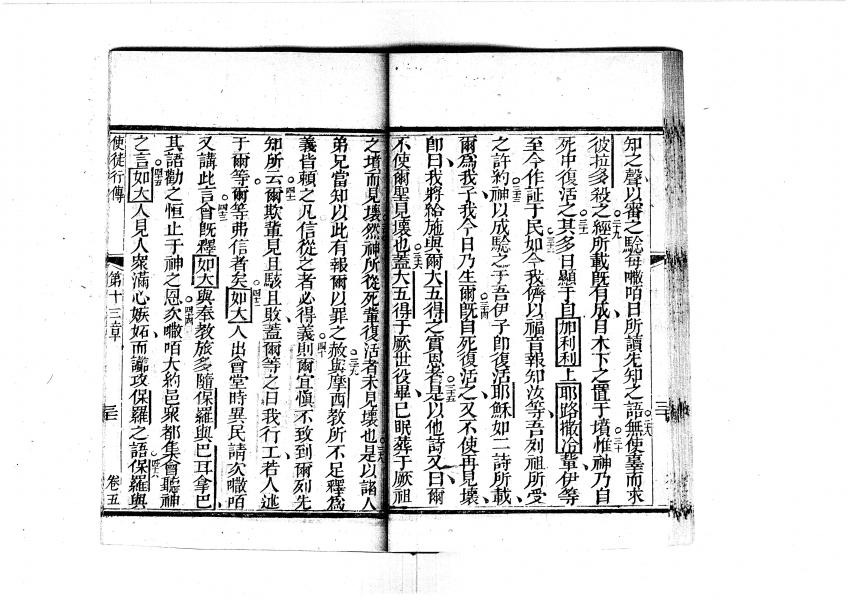 知之聲以審之騐每㘔咟日所讀先知之語無使辜而求
彼拉多殺之經所載旣有成自木下之置于墳惟神乃自
死中復活之其多日顯于自加利利上耶路撒冷輩伊等
至今作証于民如今我儕以福音報知汝等吾列祖所受
之許約神以成騐之于吾伊子卽復活耶穌如二詩所載
爾爲我子我今日乃生爾旣自死復活之又不使再見壞
卽曰我將給施與爾大五得之實恩者是以他詩又曰爾
不使爾聖見壞也蓋大五得于厥世役畢已眠葬于厥祖
之墳而見壞然神所從死輩復活者未見壞也是以諸人
弟兄當知以此有報爾以罪之赦與摩西教所不足釋爲
義皆賴之凡信從之者必得義則爾宜愼不致到爾列先
知所云爾欺輩見且駭且敗蓋爾等之日我行工若人述
于爾等爾等弗信者矣如大人出會堂時異民請次㘔咟
又講此言會旣釋如大與奉教旅多隨保羅與巴耳拿巴
其語勸之恒止于神之恩次㘔咟大約邑衆都集會聽神
之言如大人見人衆滿心嫉妬而讒攻保羅之語保羅與
使徒行傳 第十三章 卷五